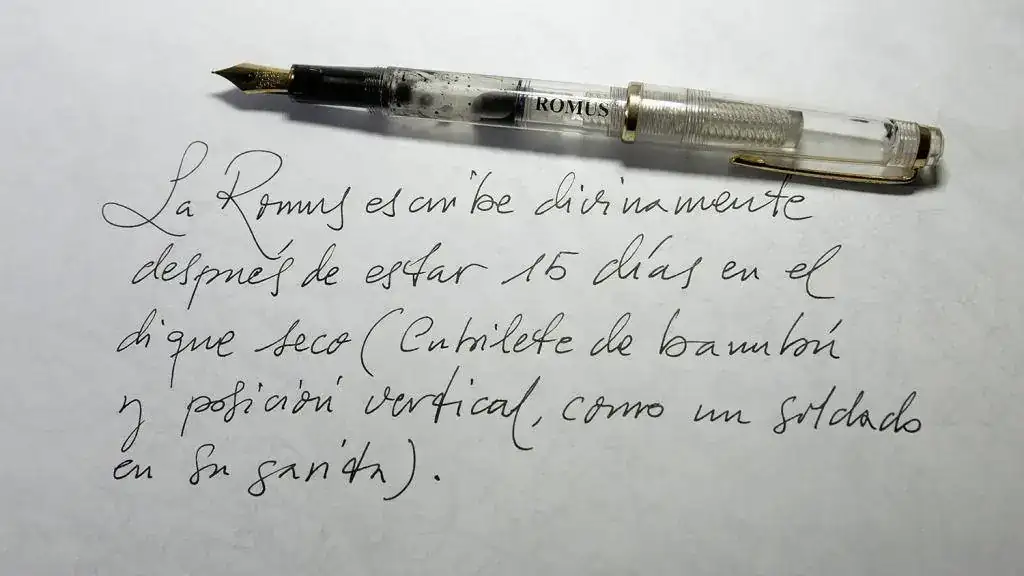 ROMUS
La Romus escribe divinamente
después de estar 15 días en el
dique seco (Cubilete de bambú
y posición vertical, como un soldado
en su garita).